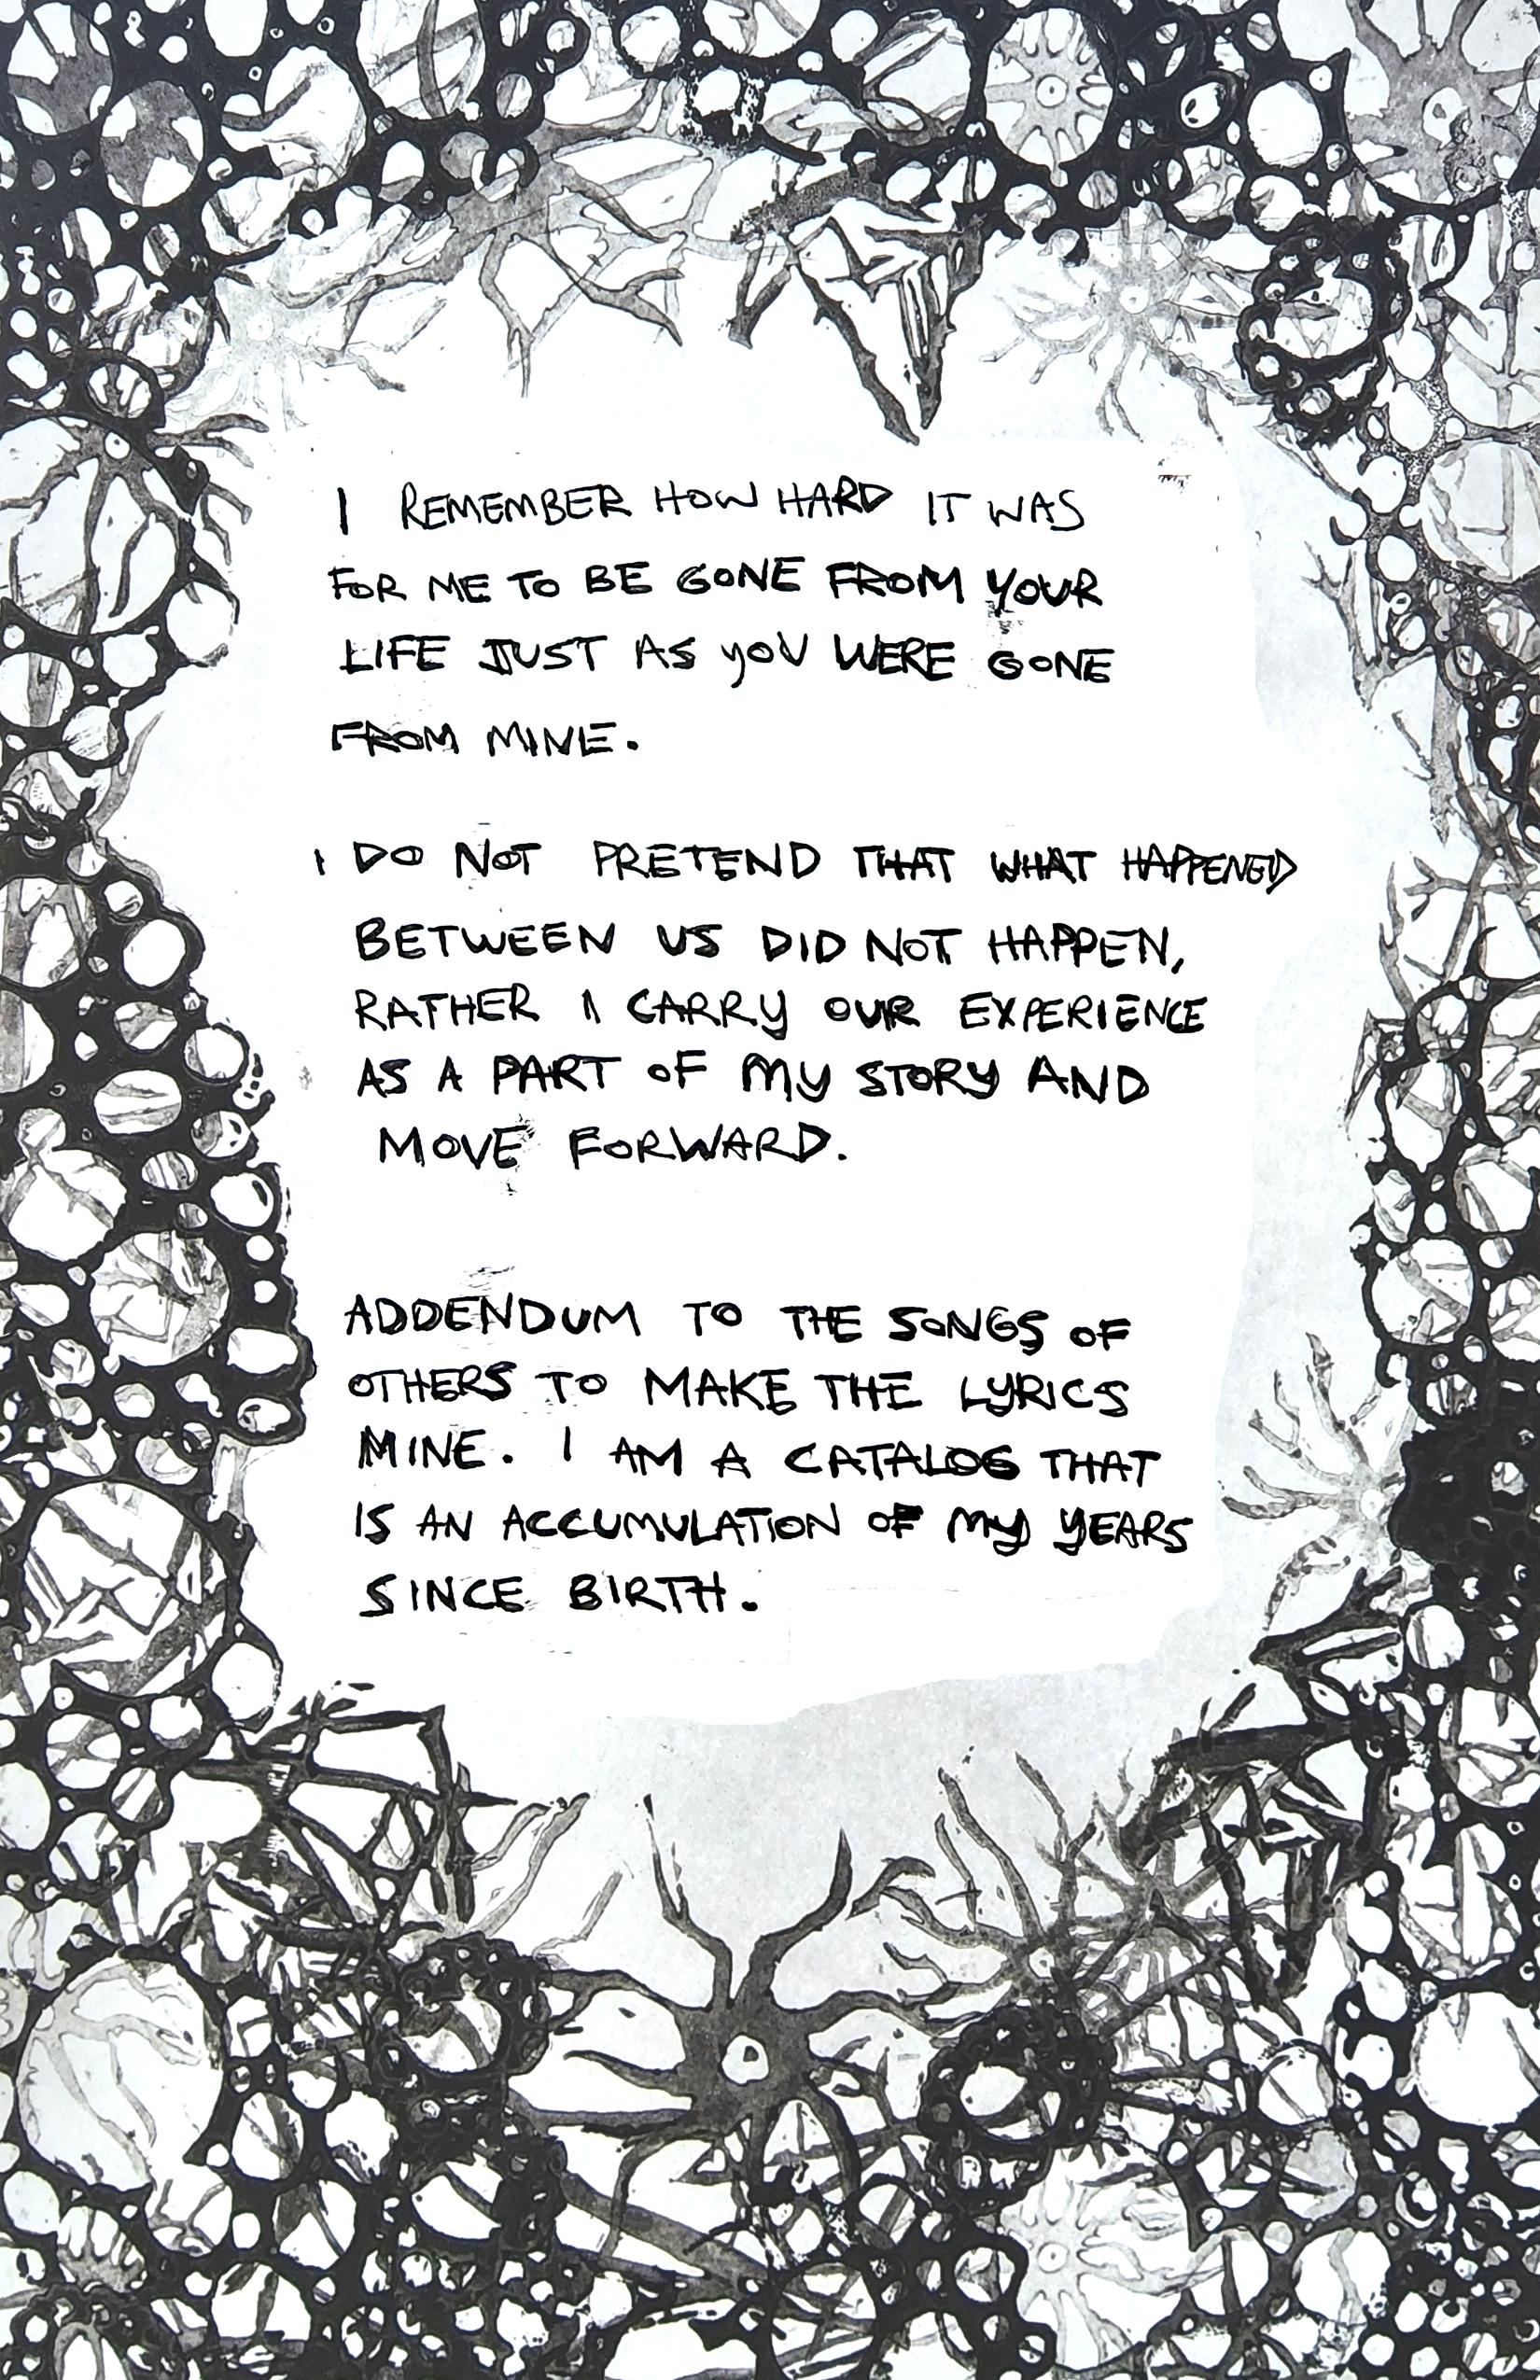 I REMEMBER HOW HARD IT WAS
FOR ME TO BE GONE FROM YOUR
LIFE JUST AS YOU WERE GONE
FROM MINE.
I DO NOT PRETEND THAT WHAT HAPPENED
BETWEEN US DID NOT HAPPEN,
RATHER I CARRY OUR EXPERIENCE
AS A PART OF MY STORY AND
MOVE FORWARD.
ADDENDUM TO THE SONGS OF
OTHERS TO MAKE THE LYRICS
MINE. I AM A CATALOG THAT
IS AN ACCUMULATION OF MY YEARS
SINCE BIRTH.